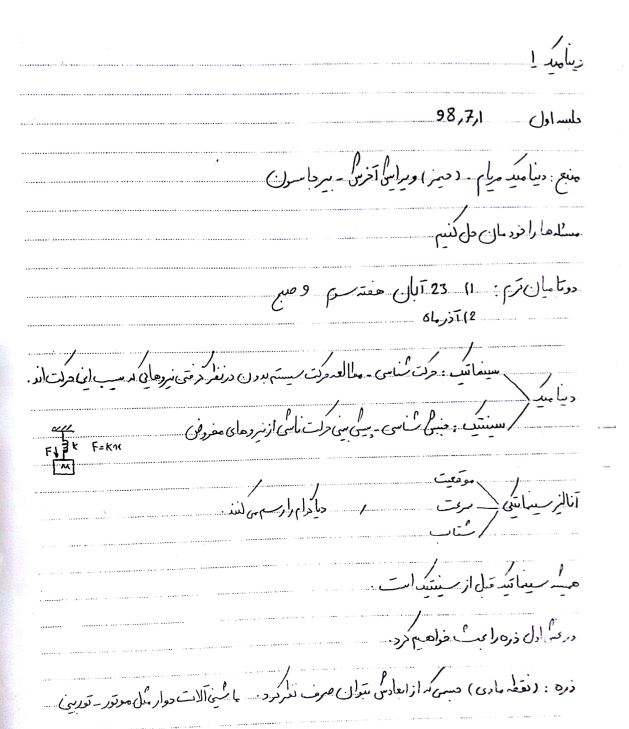 دینامیک !
جلسه اول 98,7,1
منبع : دینامیک مریام - (جیمز) ویرایش آخرش - بیرجانسون
مسئله‌ها را خودمان حل کنیم
دو تا میان ترم : 1) 23 آبان هفته سوم 9 صبح
2) آذر ماه
دینامیک
سینماتیک : حرکت شناسی - مطالعه حرکت سیستم بدون در نظر گرفتن نیروهایی که سبب این حرکت اند.
سینتیک : جنبش شناسی - پیش بینی حرکت ناشی از نیروهای مفروض
F K F=Kx
M
آنالیز سینماتیکی
موقعیت
سرعت , دیاگرام را رسم می کنند.
شتاب
همیشه سینماتیک قبل از سینتیک است .
در بخش اول ذره را بحث خواهیم کرد.
ذره : (نقطه مادی) جسمی که از ابعادش بتوان صرف نظر کرد. ماشین آلات دوار مثل موتور - توربین